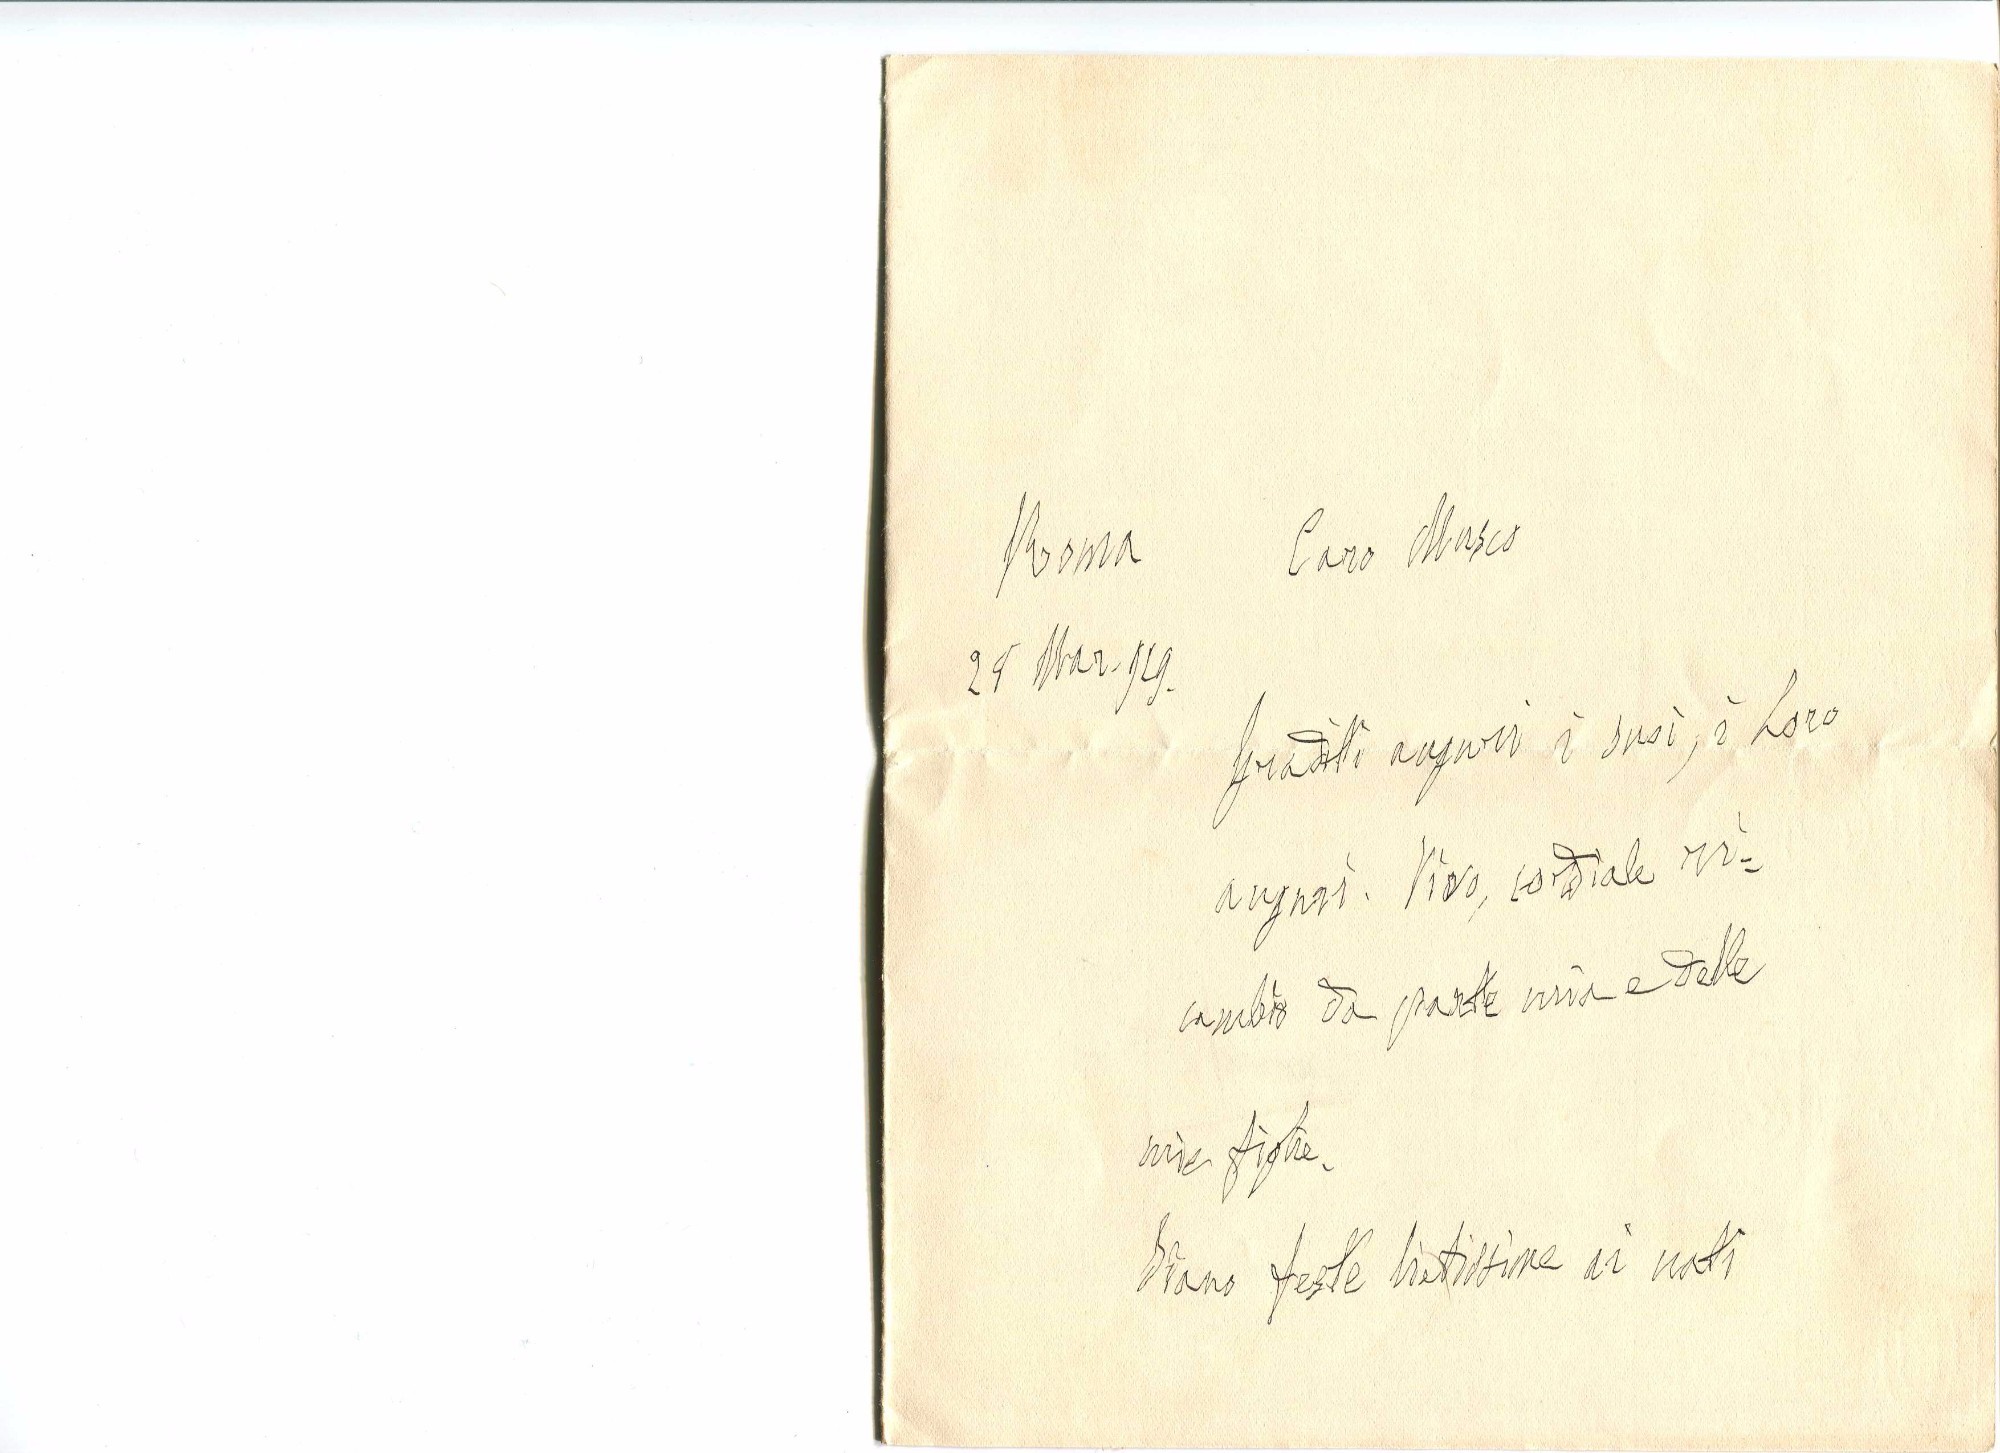 Roma
Caro Musco
Mar. 929.
Graditi auguri i suoi, i Loro
auguri. Vivo, cordiale ri-
cambio da parte mia e delle
mie figlie.
Siano feste lietissime ai